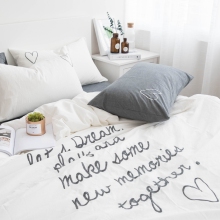 Dream.
and
make some
new memories
together.